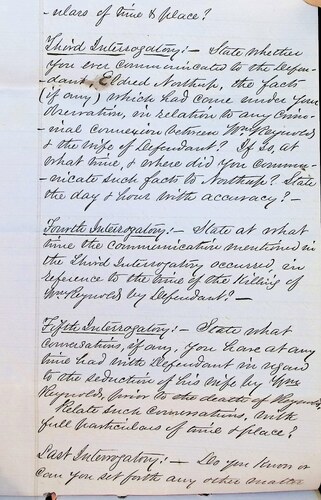 -ulars of time & place?
Third Interrogatory:- State whether
you ever communicated to the Defen-
dant, Eldred Northup, the facts
(if any) which had come under your
observation, in relation to any crim-
inal connexion between Wm Reynolds
& the wife of Defendant? If so, at
what time, & where did you commu-
-nicate such facts to Northup? State
the day & hour with accuracy?-
Fourth Interrogatory:- State at what
time the communication mentioned in
the Third Interrogatory occurred, in
reference to the time of the killing of
Wm Reynolds by Defendant?-
Fifth Interrogatory:- State what
conversations, if any, you have at any
time had with Defendant in regard
to the seduction of his wife by Wm
Reynolds, prior to the death of Reynolds
Relate such conversations, with
full particulars of time & place?
Last Interrogatory:- Do you know or
can you set forth any other matter